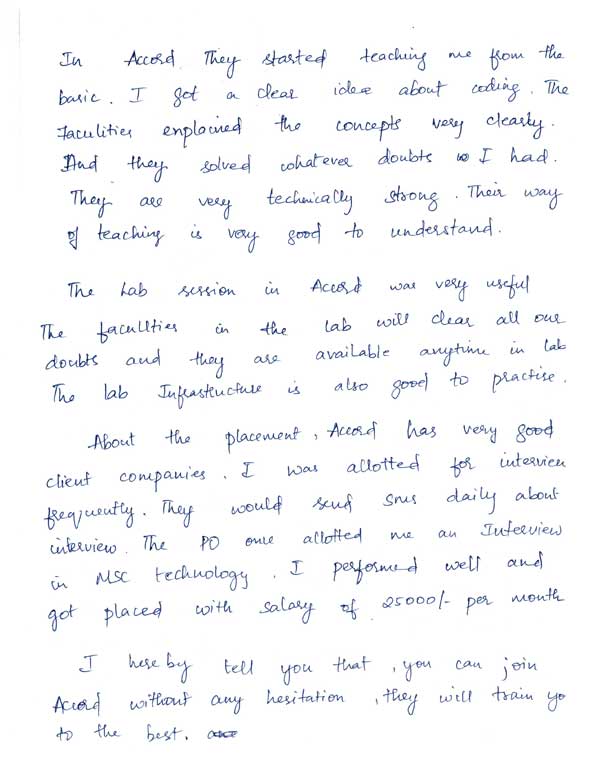 In Accord They started teaching me from the
basic. I got a clear idea about coding. The
faculities explained the concepts very clearly.
And they solved whatever doubts I had.
They are very technically strong. Their way
of teaching is very good to understand.
The Lab session in Accord was very useful
The facullties in the lab will clear all our
doubts and they are available anytime in lab
The lab Infrastructure is also good to practise.
About the placement, Accord has very good
client companies. I was allotted for interview
frequently. They would send sms daily about
interview. The PO once allotted me an Interview
in MSC technology. I performed well and
got placed with salary of 25000/- per month
I here by tell you that, you can join
Accord without any hesitation, they will train yo
to the best.